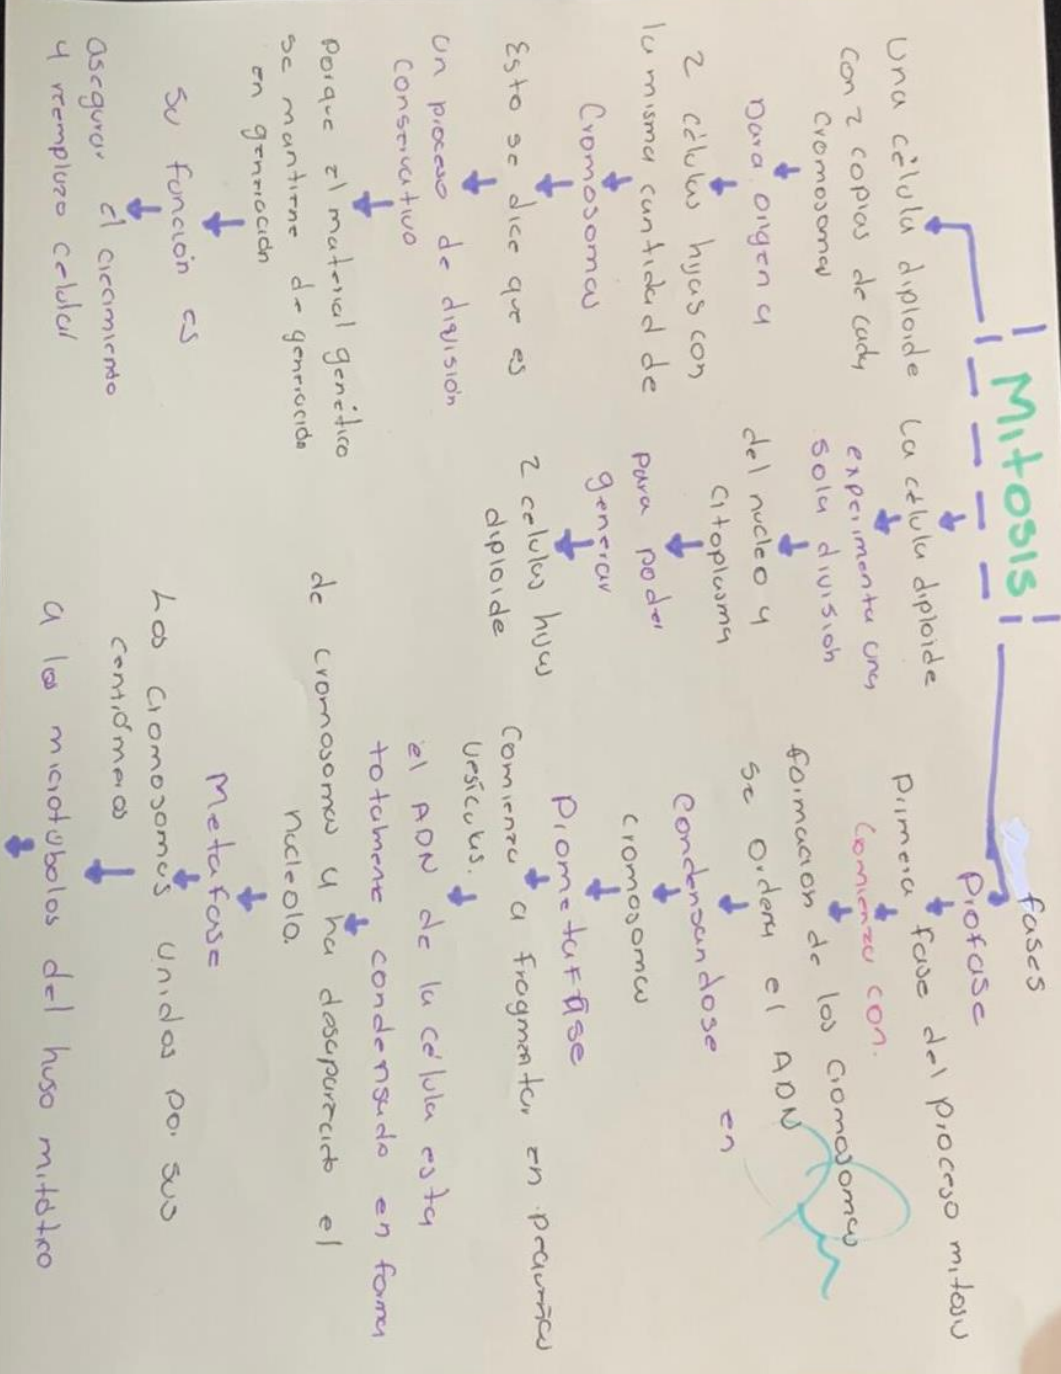 Mitosis
Una célula diploide
con 2 copias de cada
cromosomas
Dara origen a
2 células hijas con
la misma cantidad de
Cromosomas
Esto se dice que es
un proceso de división
conservativo
Porque el material genético
se mantiene de generación
en generación
Su función es
asegurar el crecimiento
y reemplazo celular
La célula diploide
experimenta una
sola división
del nucleo y
citoplasma
para poder
generar
2 celulas hijas
diploide
fases
Profase
Primera fase del proceso mitosis
Comienza con.
formacion de los cromosomas
se ordena el ADN
Condensandose en
cromosomas
Prometafase
Comienza a fragmentar en pequeñas
vesículas.
el ADN de la célula esta
totalmente condensado en forma
de cromosomas y ha desaparecido el
nucleolo.
Metafase
Los cromosomas unidos por sus
centrómeros
a los microtúbolos del huso mitótico